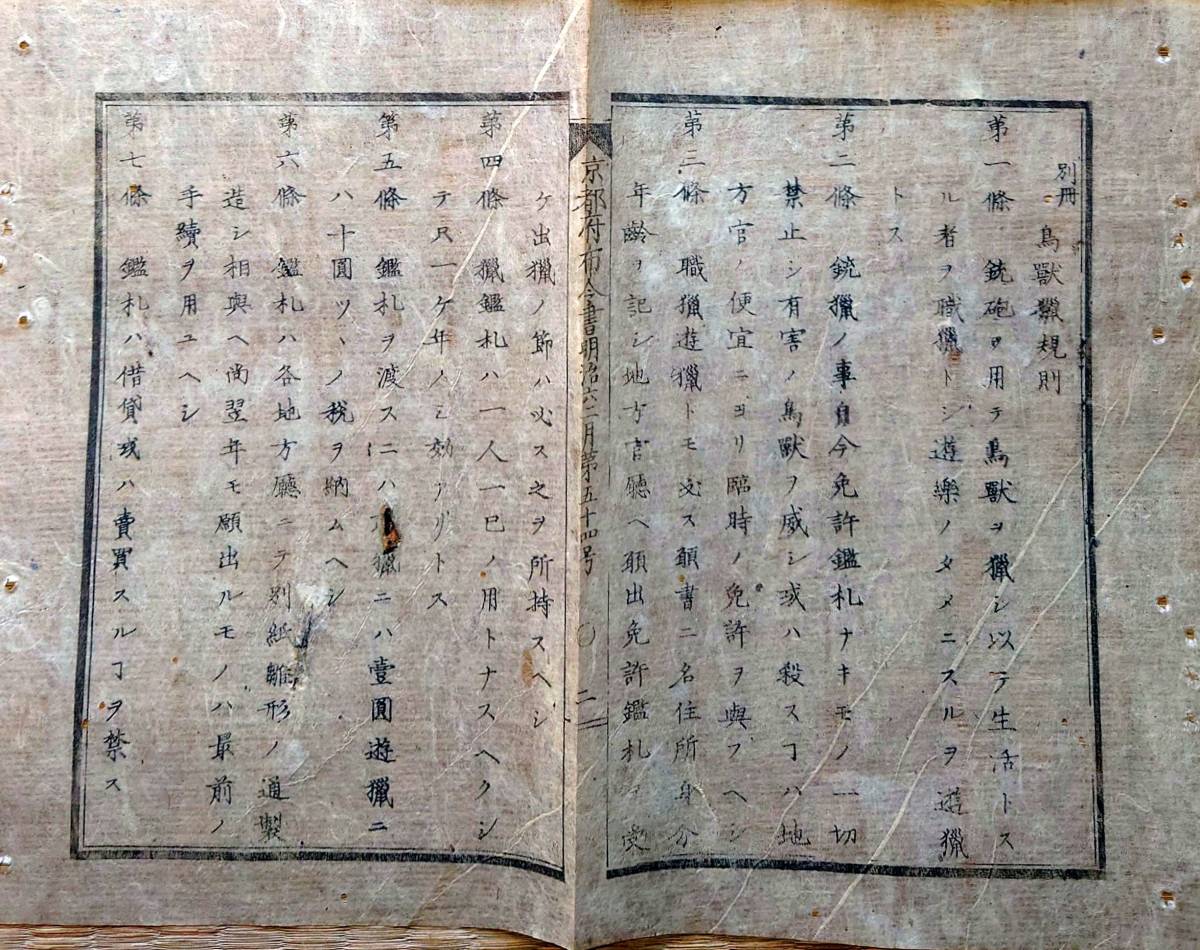 別冊
鳥獸獵規則
第一條 銃砲ヲ用テ鳥獸ヲ獵シ以テ生活トス
ル者ヲ職獵トシ遊樂ノタメニスルヲ遊獵
トス
第二條 銃獵ノ事自今免許鑑札ナキモノ一切
禁止シ有害ノ鳥獸ヲ威シ或ハ殺スヿハ地
方官ノ便宜ニヨリ臨時ノ免許ヲ與フヘシ
第三條 職獵遊獵トモ必ス願書ニ名住所身分
年齡ヲ記シ地方官廳ヘ願出免許鑑札ヲ受
京都府布令書明治六二月第五十四号 〇 二
ケ出獵ノ節ハ必ス之ヲ所持スヘシ
第四條 獵鑑札ハ一人一已ノ用トナスヘクシ
テ尺一ケ年ノミ効アリトス
第五條 鑑札ヲ渡スニハ獵ニハ壹圓遊獵ニ
ハ十圓ツヽノ税ヲ納ムヘシ
第六條 鑑札ハ各地方廳ニテ別紙雛形ノ通製
造シ相與ヘ尚翌年モ願出ルモノハ最前ノ
手續ヲ用ユヘシ
第七條 鑑札ハ借貸或ハ賣買スルヿヲ禁ス